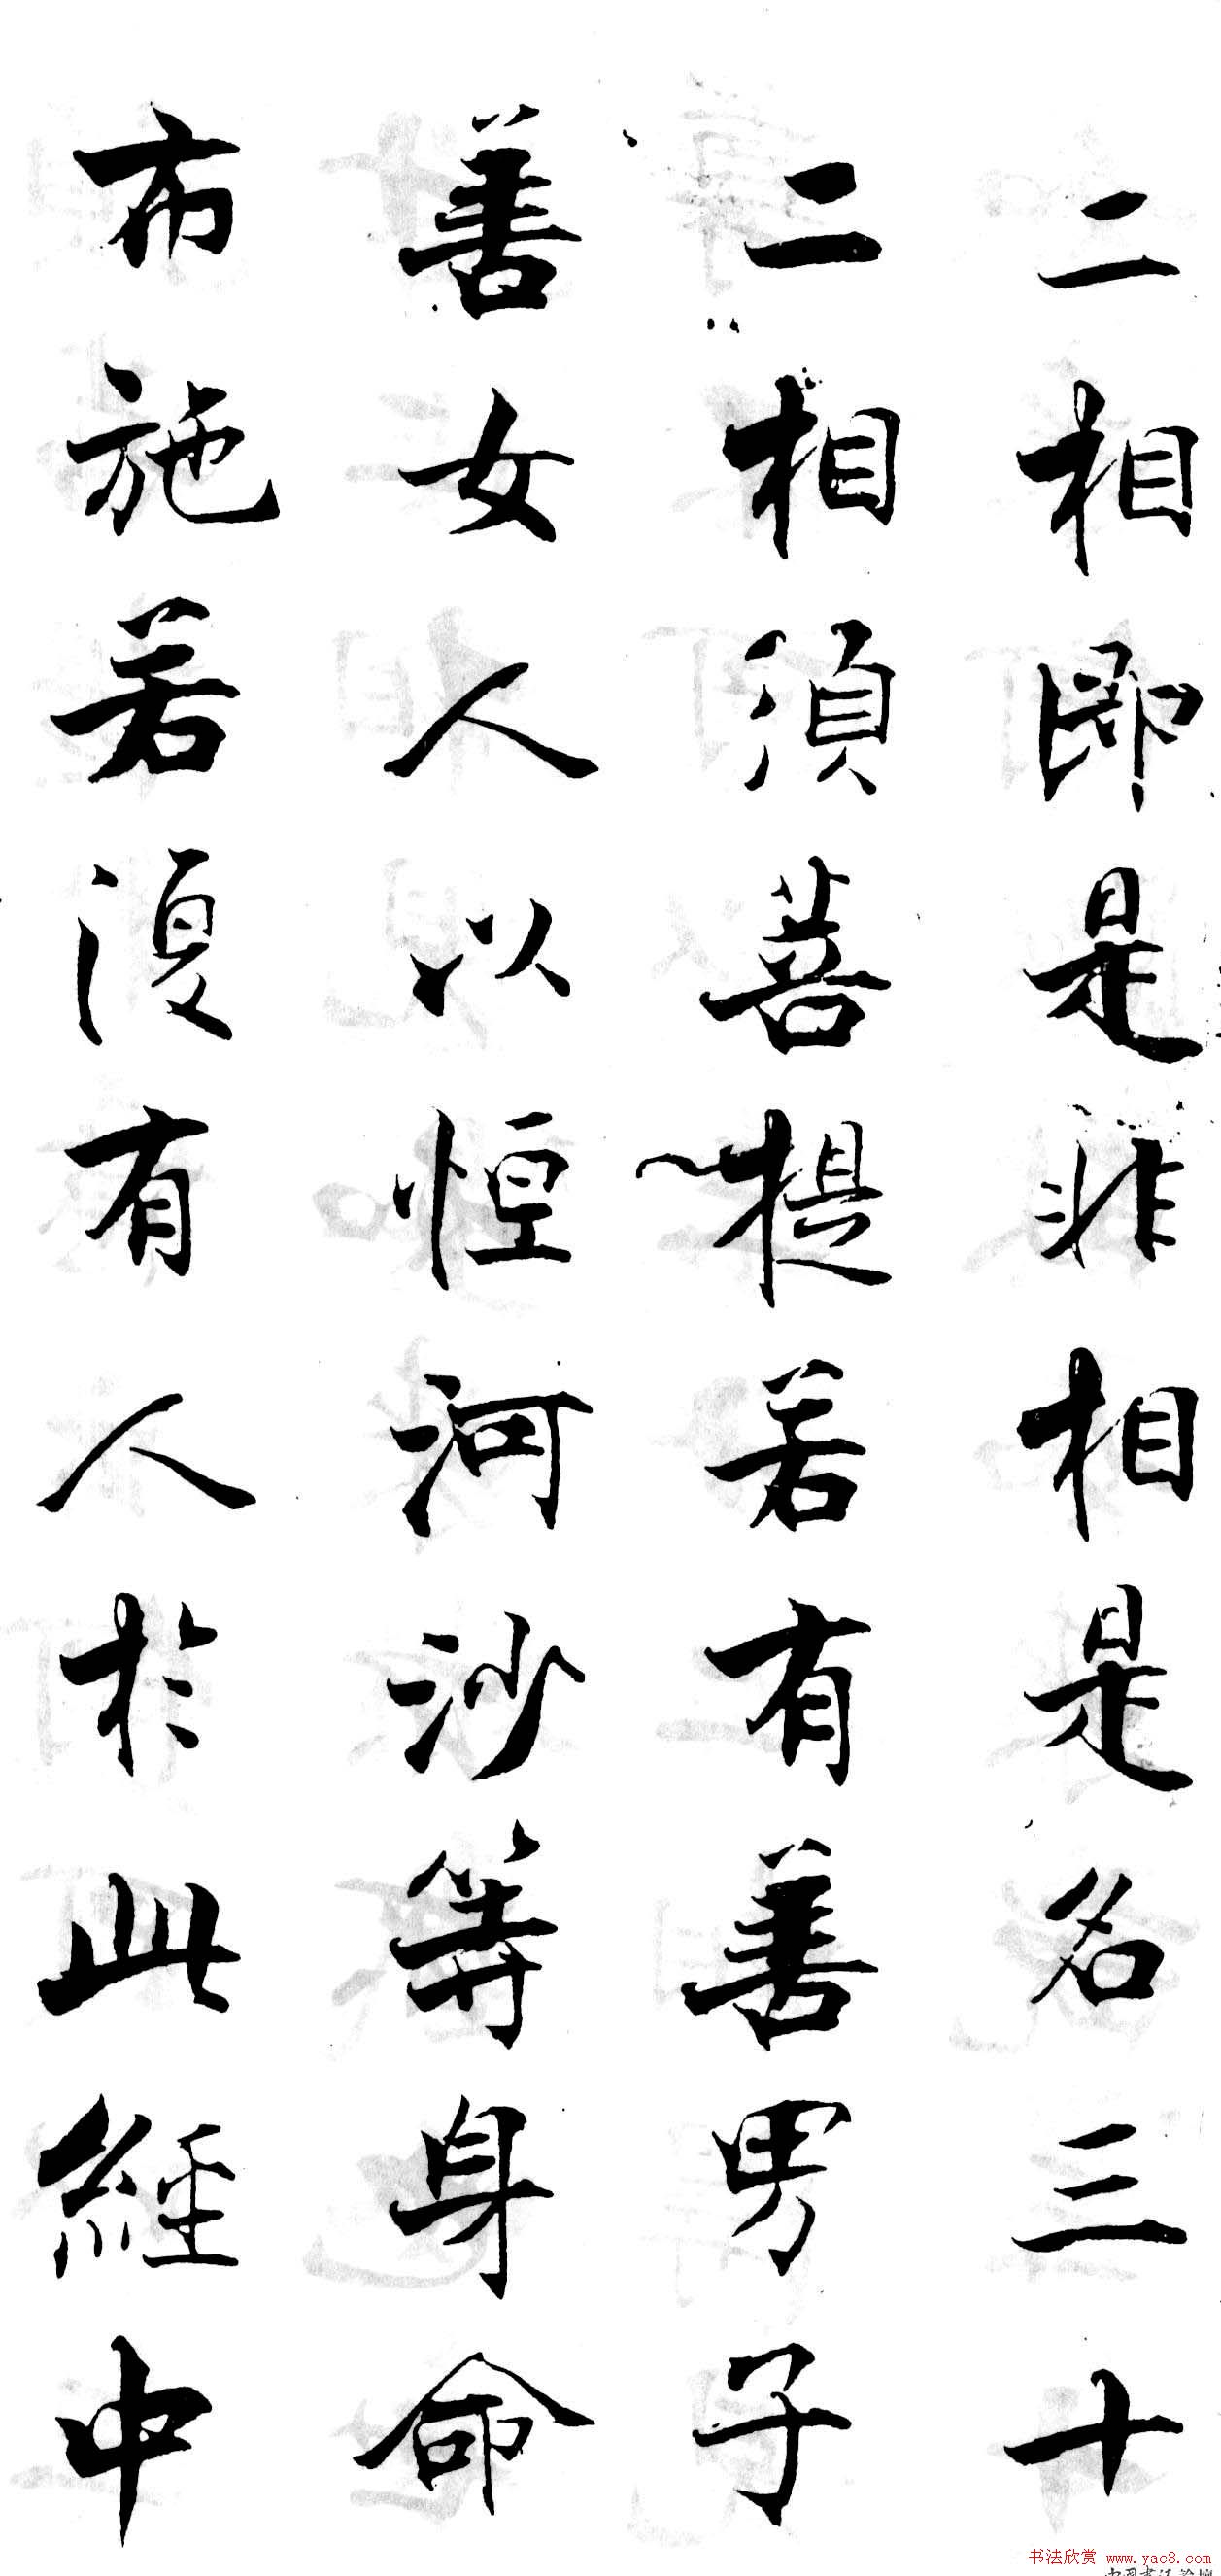 二相即是非相是名三十
二相須菩提若有善男子
善女人以恒河沙等身命
布施若復有人於此經中
书法欣赏 www.yac8.com